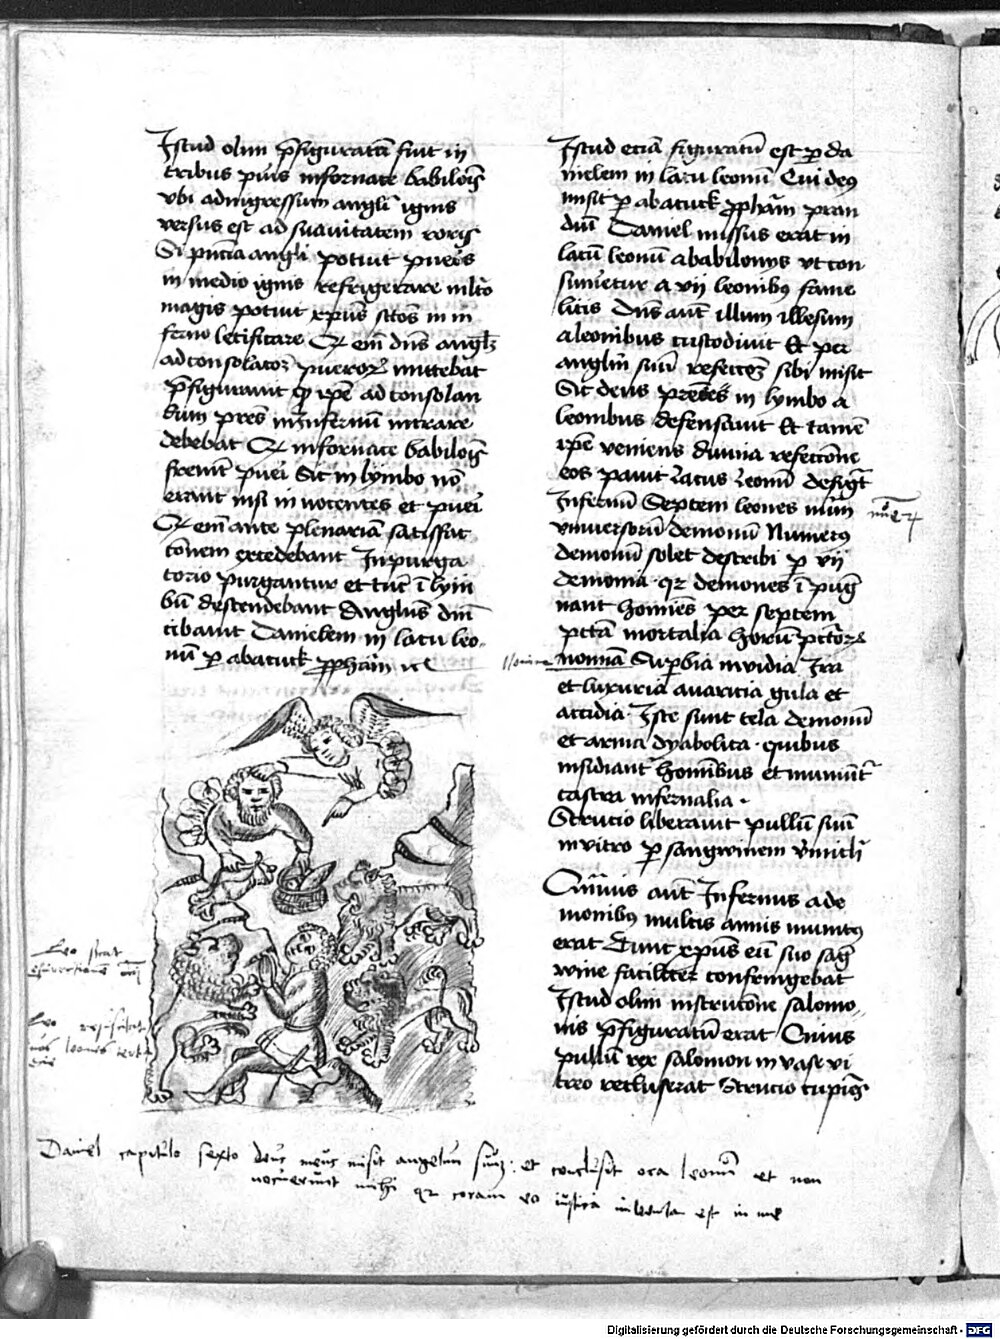 Istud olim p̄figuratū fuit in
tribus pu̅is in fornace babiloīs
vbi ad ingressum angli̅ ignis
versus est ad suauitatem roris
Si pn̄cia angli̅ potuit pueros
in medio ignis refrigerare mlto
magis potuit xp̄us sc̄os in in
ferno letificare Qr em̄ dn̄s anglm̄
ad consolac̄oꝫ pueroꝝ mittebat
p̄figurauit qꝫ ip̄e ad consolan
dum pr̄es in infernū intrare
debebat Qr in fornace babilōis
fuerūt pue̅i Sic in lymbo nō
erant nisi in nocentes et pue̅i
Qr em̄ ante plenariā satisfac
c̄onem excedebant In purga
torio purgantur et tūc ī lym
bū descendebant Anglus dn̄i
cibauit Danielem in lacu leo
nū ꝑ abacuck ꝓpham̄ ꝛc
Leo
Leo
Istud eciā figuratū est ꝑ da
nielem in lacu leonū Cui deꝯ
misit ꝑ abacuck ꝓpham̄ pran
diū Daniel missus erat in
lacū leonū a babilonijs vt con
sumetur a vij leonibꝯ fame
licis Dn̄s aūt illum illesum
a leonibus custodiuit Et ꝑ
anglm̄ suū refecc̄oꝫ sibi misit
Sic deus pr̄es in lymbo a
leonibus defensauit Et tamē
ip̄e veniens diuina refecc̄one
eos pauit Lacus leonū desigt̄
Infernū Septem leones
vniuersorū demonū Numerꝯ
demonū solet describi ꝑ vij
demonia qꝛ demones ī pug
nant homīes per septem
pcc̄ta mortalia horū pcc̄toꝝ
nomina Suꝑbia inuidia Ira
et luxuria auaricia gula et
accidia Iste sunt tela demonū
et arma dyabolica quibus
insidiant̄ hominibus et muniūt̄
castra infernalia
Strucio liberauit pullū suū
in vitro ꝑ sangwinem v̄miculi
Quāuis aūt Infernus a de
monibꝯ multis annis munitꝯ
erat Tunc xp̄us eū suo sāg
wine faciliter confringebat
Istud olim in strucione salomo
nis p̄figuratū erat Cuius
pullū rex salomon in vase vi
treo recluserat Strucio cupiēs
Daniel capitulo sexto deus meus misit angelum suū et conclusit ora leonū et non
nocuerunt mihi qꝛ coram eo iusticia inuenta est in me
Digitalisierung gefördert durch die Deutsche Forschungsgemeinschaft - DFG